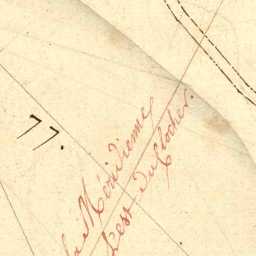 77.
la Méridienne
l'est du Clocher.